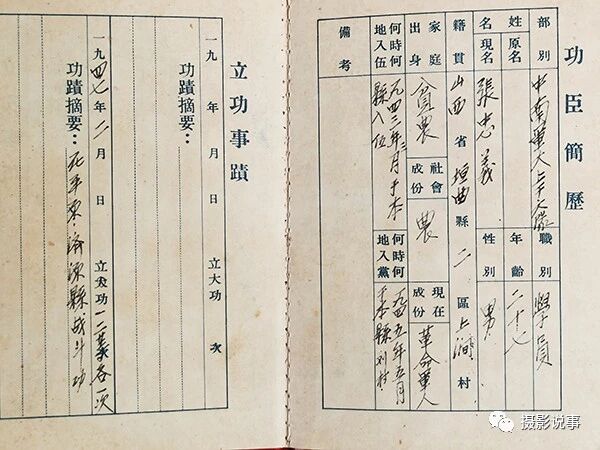 功臣簡歷
部別 中南軍大 職別 學員
姓名 原名 現名 張忠義 年齡 二十七 性別 男
籍貫 山西省垣曲縣二區上澗村
家庭出身 貧農 社會成份 農 現在成份 革命軍人
何時何地入伍 一九四三年二月于本縣入伍 何時何地入黨 一九四五年五月于本縣刘村
備考
立功事蹟
一九 年 月 日 立大功 次
功蹟摘要：
一九四七年二月 日 立功一二等各一次
功蹟摘要：在平原·濟源縣战斗功
摄影说事